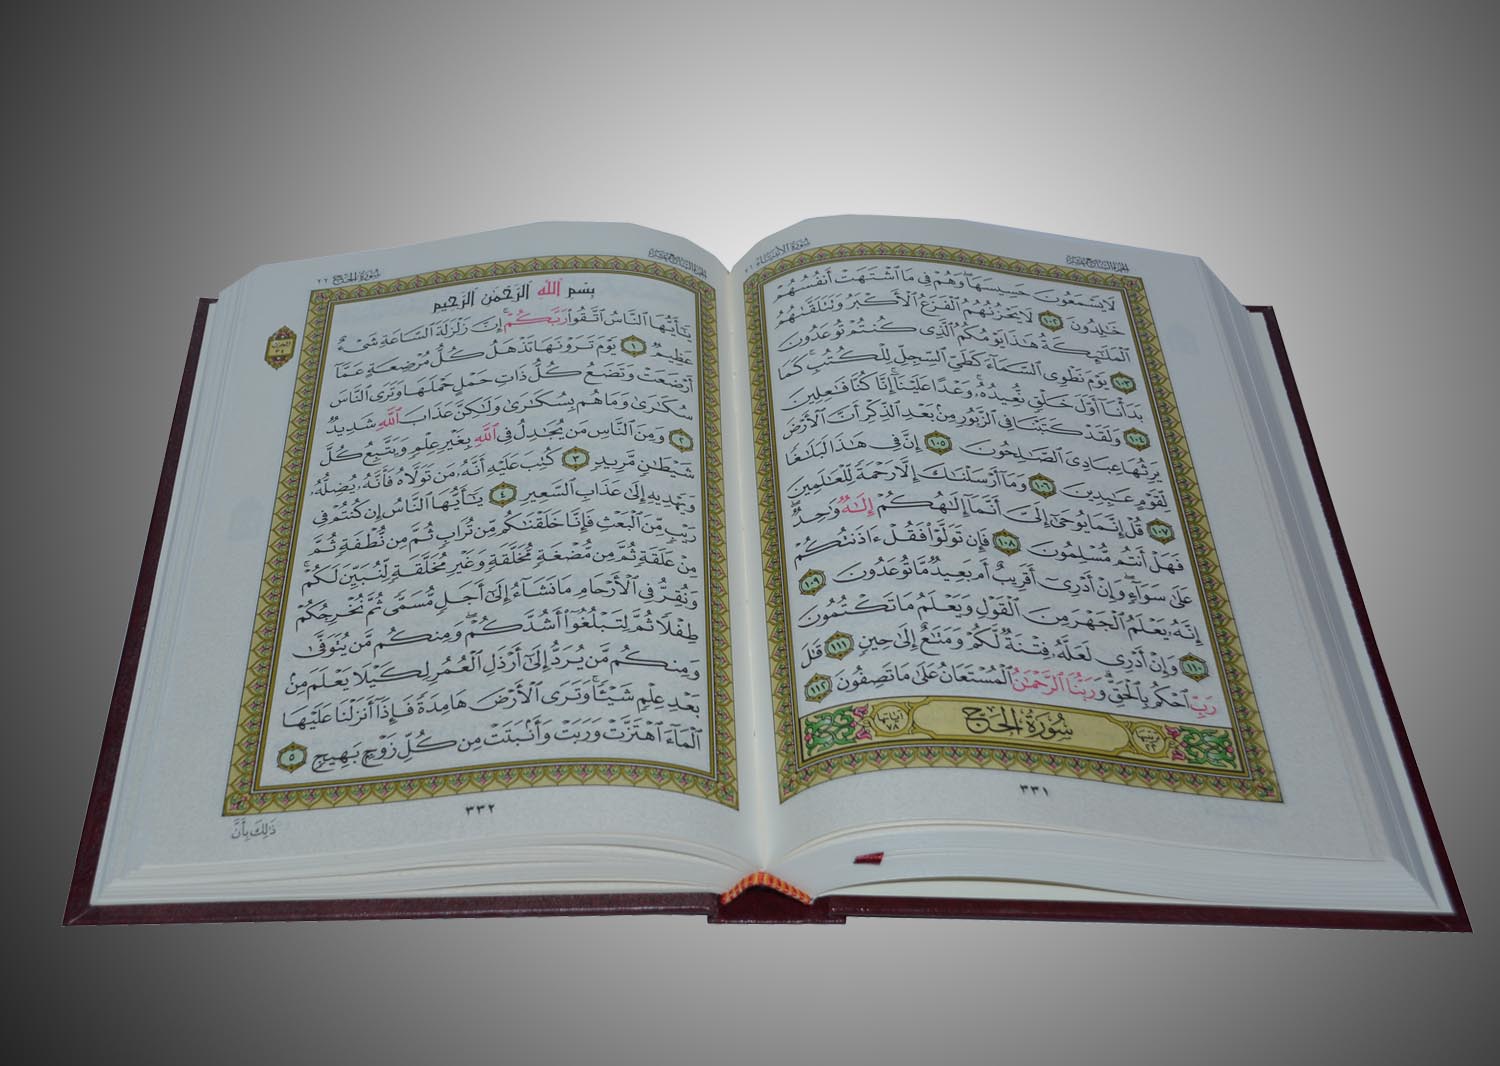 سُورَةُ الأَنبِيَاء ٢١
الجزء السابع عشر
لَا يَسْمَعُونَ حَسِيسَهَا وَهُمْ فِي مَا ٱشْتَهَتْ أَنفُسُهُمْ
خَٰلِدُونَ ١٠٢ لَا يَحْزُنُهُمُ ٱلْفَزَعُ ٱلْأَكْبَرُ وَتَتَلَقَّىٰهُمُ
ٱلْمَلَٰٓئِكَةُ هَٰذَا يَوْمُكُمُ ٱلَّذِي كُنتُمْ تُوعَدُونَ
١٠٣ يَوْمَ نَطْوِي ٱلسَّمَآءَ كَطَيِّ ٱلسِّجِلِّ لِلْكُتُبِ ۚ كَمَا
بَدَأْنَآ أَوَّلَ خَلْقٍ نُّعِيدُهُۥ ۚ وَعْدًا عَلَيْنَآ ۚ إِنَّا كُنَّا فَٰعِلِينَ
١٠٤ وَلَقَدْ كَتَبْنَا فِي ٱلزَّبُورِ مِنۢ بَعْدِ ٱلذِّكْرِ أَنَّ ٱلْأَرْضَ
يَرِثُهَا عِبَادِيَ ٱلصَّٰلِحُونَ ١٠٥ إِنَّ فِي هَٰذَا لَبَلَٰغًا
لِّقَوْمٍ عَٰبِدِينَ ١٠٦ وَمَآ أَرْسَلْنَٰكَ إِلَّا رَحْمَةً لِّلْعَٰلَمِينَ
١٠٧ قُلْ إِنَّمَا يُوحَىٰٓ إِلَيَّ أَنَّمَآ إِلَٰهُكُمْ إِلَٰهٌ وَٰحِدٌ ۖ
فَهَلْ أَنتُم مُّسْلِمُونَ ١٠٨ فَإِن تَوَلَّوْا۟ فَقُلْ ءَاذَنتُكُمْ
عَلَىٰ سَوَآءٍ ۖ وَإِنْ أَدْرِيٓ أَقَرِيبٌ أَم بَعِيدٌ مَّا تُوعَدُونَ ١٠٩
إِنَّهُۥ يَعْلَمُ ٱلْجَهْرَ مِنَ ٱلْقَوْلِ وَيَعْلَمُ مَا تَكْتُمُونَ
١١٠ وَإِنْ أَدْرِي لَعَلَّهُۥ فِتْنَةٌ لَّكُمْ وَمَتَٰعٌ إِلَىٰ حِينٍ ١١١ قَٰلَ
رَبِّ ٱحْكُم بِٱلْحَقِّ ۗ وَرَبُّنَا ٱلرَّحْمَٰنُ ٱلْمُسْتَعَانُ عَلَىٰ مَا تَصِفُونَ ١١٢
ترتيبها ٢٢ سُورَةُ الحَجّ آياتها ٧٨
٣٣١
الجزء السابع عشر
سُورَةُ الحَجّ ٢٢
بِسْمِ ٱللَّهِ ٱلرَّحْمَٰنِ ٱلرَّحِيمِ
يَٰٓأَيُّهَا ٱلنَّاسُ ٱتَّقُوا۟ رَبَّكُمْ ۚ إِنَّ زَلْزَلَةَ ٱلسَّاعَةِ شَيْءٌ
عَظِيمٌ ١ يَوْمَ تَرَوْنَهَا تَذْهَلُ كُلُّ مُرْضِعَةٍ عَمَّآ
أَرْضَعَتْ وَتَضَعُ كُلُّ ذَاتِ حَمْلٍ حَمْلَهَا وَتَرَى ٱلنَّاسَ
سُكَٰرَىٰ وَمَا هُم بِسُكَٰرَىٰ وَلَٰكِنَّ عَذَابَ ٱللَّهِ شَدِيدٌ
٢ وَمِنَ ٱلنَّاسِ مَن يُجَٰدِلُ فِي ٱللَّهِ بِغَيْرِ عِلْمٍ وَيَتَّبِعُ كُلَّ
شَيْطَٰنٍ مَّرِيدٍ ٣ كُتِبَ عَلَيْهِ أَنَّهُۥ مَن تَوَلَّاهُ فَأَنَّهُۥ يُضِلُّهُۥ
وَيَهْدِيهِ إِلَىٰ عَذَابِ ٱلسَّعِيرِ ٤ يَٰٓأَيُّهَا ٱلنَّاسُ إِن كُنتُمْ فِي
رَيْبٍ مِّنَ ٱلْبَعْثِ فَإِنَّا خَلَقْنَٰكُم مِّن تُرَابٍ ثُمَّ مِن نُّطْفَةٍ ثُمَّ
مِنْ عَلَقَةٍ ثُمَّ مِن مُّضْغَةٍ مُّخَلَّقَةٍ وَغَيْرِ مُخَلَّقَةٍ لِّنُبَيِّنَ لَكُمْ ۚ
وَنُقِرُّ فِي ٱلْأَرْحَامِ مَا نَشَآءُ إِلَىٰٓ أَجَلٍ مُّسَمًّى ثُمَّ نُخْرِجُكُمْ
طِفْلًا ثُمَّ لِتَبْلُغُوٓا۟ أَشُدَّكُمْ ۖ وَمِنكُم مَّن يُتَوَفَّىٰ
وَمِنكُم مَّن يُرَدُّ إِلَىٰٓ أَرْذَلِ ٱلْعُمُرِ لِكَيْلَا يَعْلَمَ مِنۢ
بَعْدِ عِلْمٍ شَيْـًٔا ۚ وَتَرَى ٱلْأَرْضَ هَامِدَةً فَإِذَآ أَنزَلْنَا عَلَيْهَا
ٱلْمَآءَ ٱهْتَزَّتْ وَرَبَتْ وَأَنۢبَتَتْ مِن كُلِّ زَوْجٍۭ بَهِيجٍ ٥
٣٣٢
ذَٰلِكَ بِأَنَّ